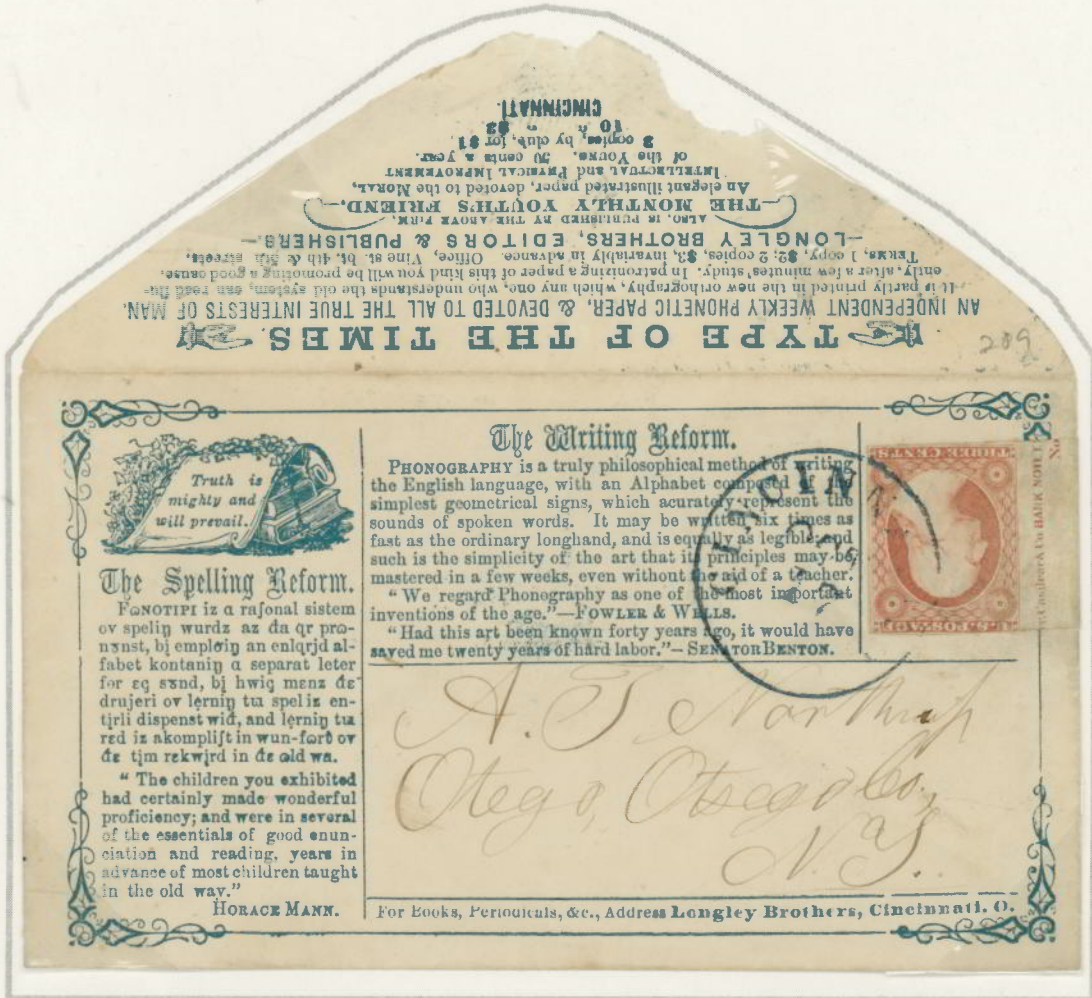 TYPE OF THE TIMES.
AN INDEPENDENT WEEKLY PHONETIC PAPER, & DEVOTED TO ALL THE TRUE INTERESTS OF MAN.
It is partly printed in the new orthography, which any one, who understands the old system, can read flu-
ently, after a few minutes' study. In patronizing a paper of this kind you will be promoting a good cause.
TERMS, 1 copy, $2; 2 copies, $3, invariably in advance. Office, Vine st. bt. 4th & 5th streets,
—LONGLEY BROTHERS, EDITORS & PUBLISHERS.—
ALSO, IS PUBLISHED BY THE ABOVE FIRM,
—THE MONTHLY YOUTH'S FRIEND,—
An elegant illustrated paper, devoted to the MORAL,
INTELLECTUAL and PHYSICAL IMPROVEMENT
of the YOUNG. 50 cents a year.
3 copies, by club, for $1
10 " " $3
CINCINNATI.
209
Truth is
mighty and
will prevail.
The Spelling Reform.
Fɷnotipi iz a raʃonal sistem
ov speliŋ wurdz az đa qr prɷ-
nɤnst, bį emploiŋ an enlqrjd al-
fabet kontaniŋ a separat leter
for eç sɤnd, bį hwiç menz đe
drujeri ov lerniŋ tu spel iz en-
tįrli dispenst wiđ, and lerniŋ tu
red iz akompliʃt in wun-fɷrt ov
đe tįm rekwįrd in đe ɷld wa.
" The children you exhibited
had certainly made wonderful
proficiency; and were in several
of the essentials of good enun-
ciation and reading, years in
advance of most children taught
in the old way."
HORACE MANN.
The Writing Reform.
PHONOGRAPHY is a truly philosophical method of writing
the English language, with an Alphabet composed of the
simplest geometrical signs, which acurately represent the
sounds of spoken words. It may be written six times as
fast as the ordinary longhand, and is equally as legible and
such is the simplicity of the art that its principles may be
mastered in a few weeks, even without the aid of a teacher.
" We regard Phonography as one of the most important
inventions of the age."—FOWLER & WELLS.
"Had this art been known forty years ago, it would have
saved me twenty years of hard labor."—SENATOR BENTON.
CINCINNATI
U.S. POSTAGE
THREE CENTS
No
Casilear & Co BANK NOTE
A. T Northrup
Otego, Otsego Co,
N.Y.
For Books, Periodicals, &c., Address Longley Brothers, Cincinnati. O.